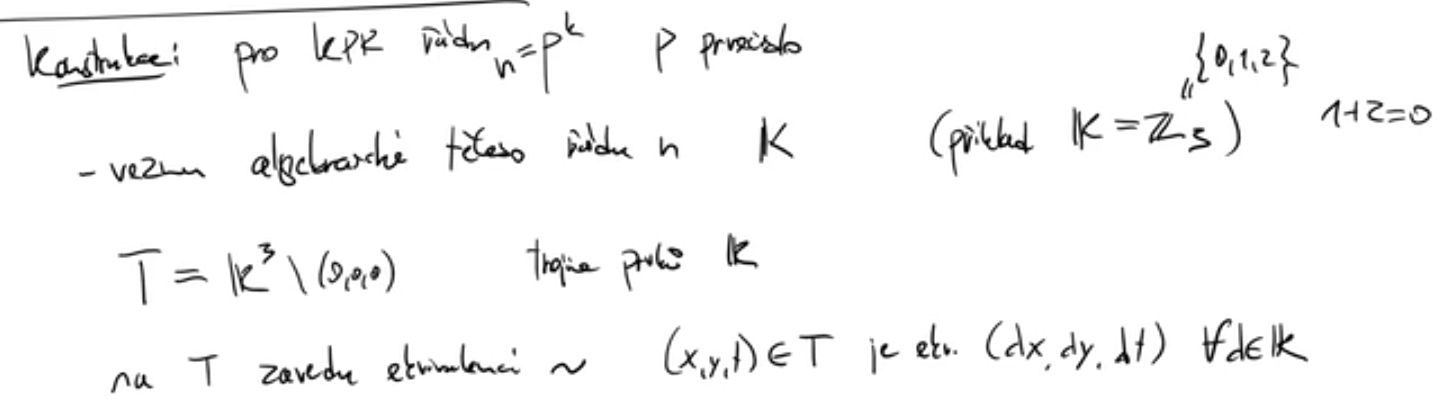 Konstrukce: pro KPR řádu n=p^k p prvočíslo
{0,1,2}
- vezmu algebraické těleso řádu n K (příklad K = Z_3) 1+2=0
T = K^3 \ (0,0,0) trojice prvků K
na T zavedu ekvivalenci ~ (x,y,t) ∈ T je ekv. (dx, dy, dt) ∀d∈K